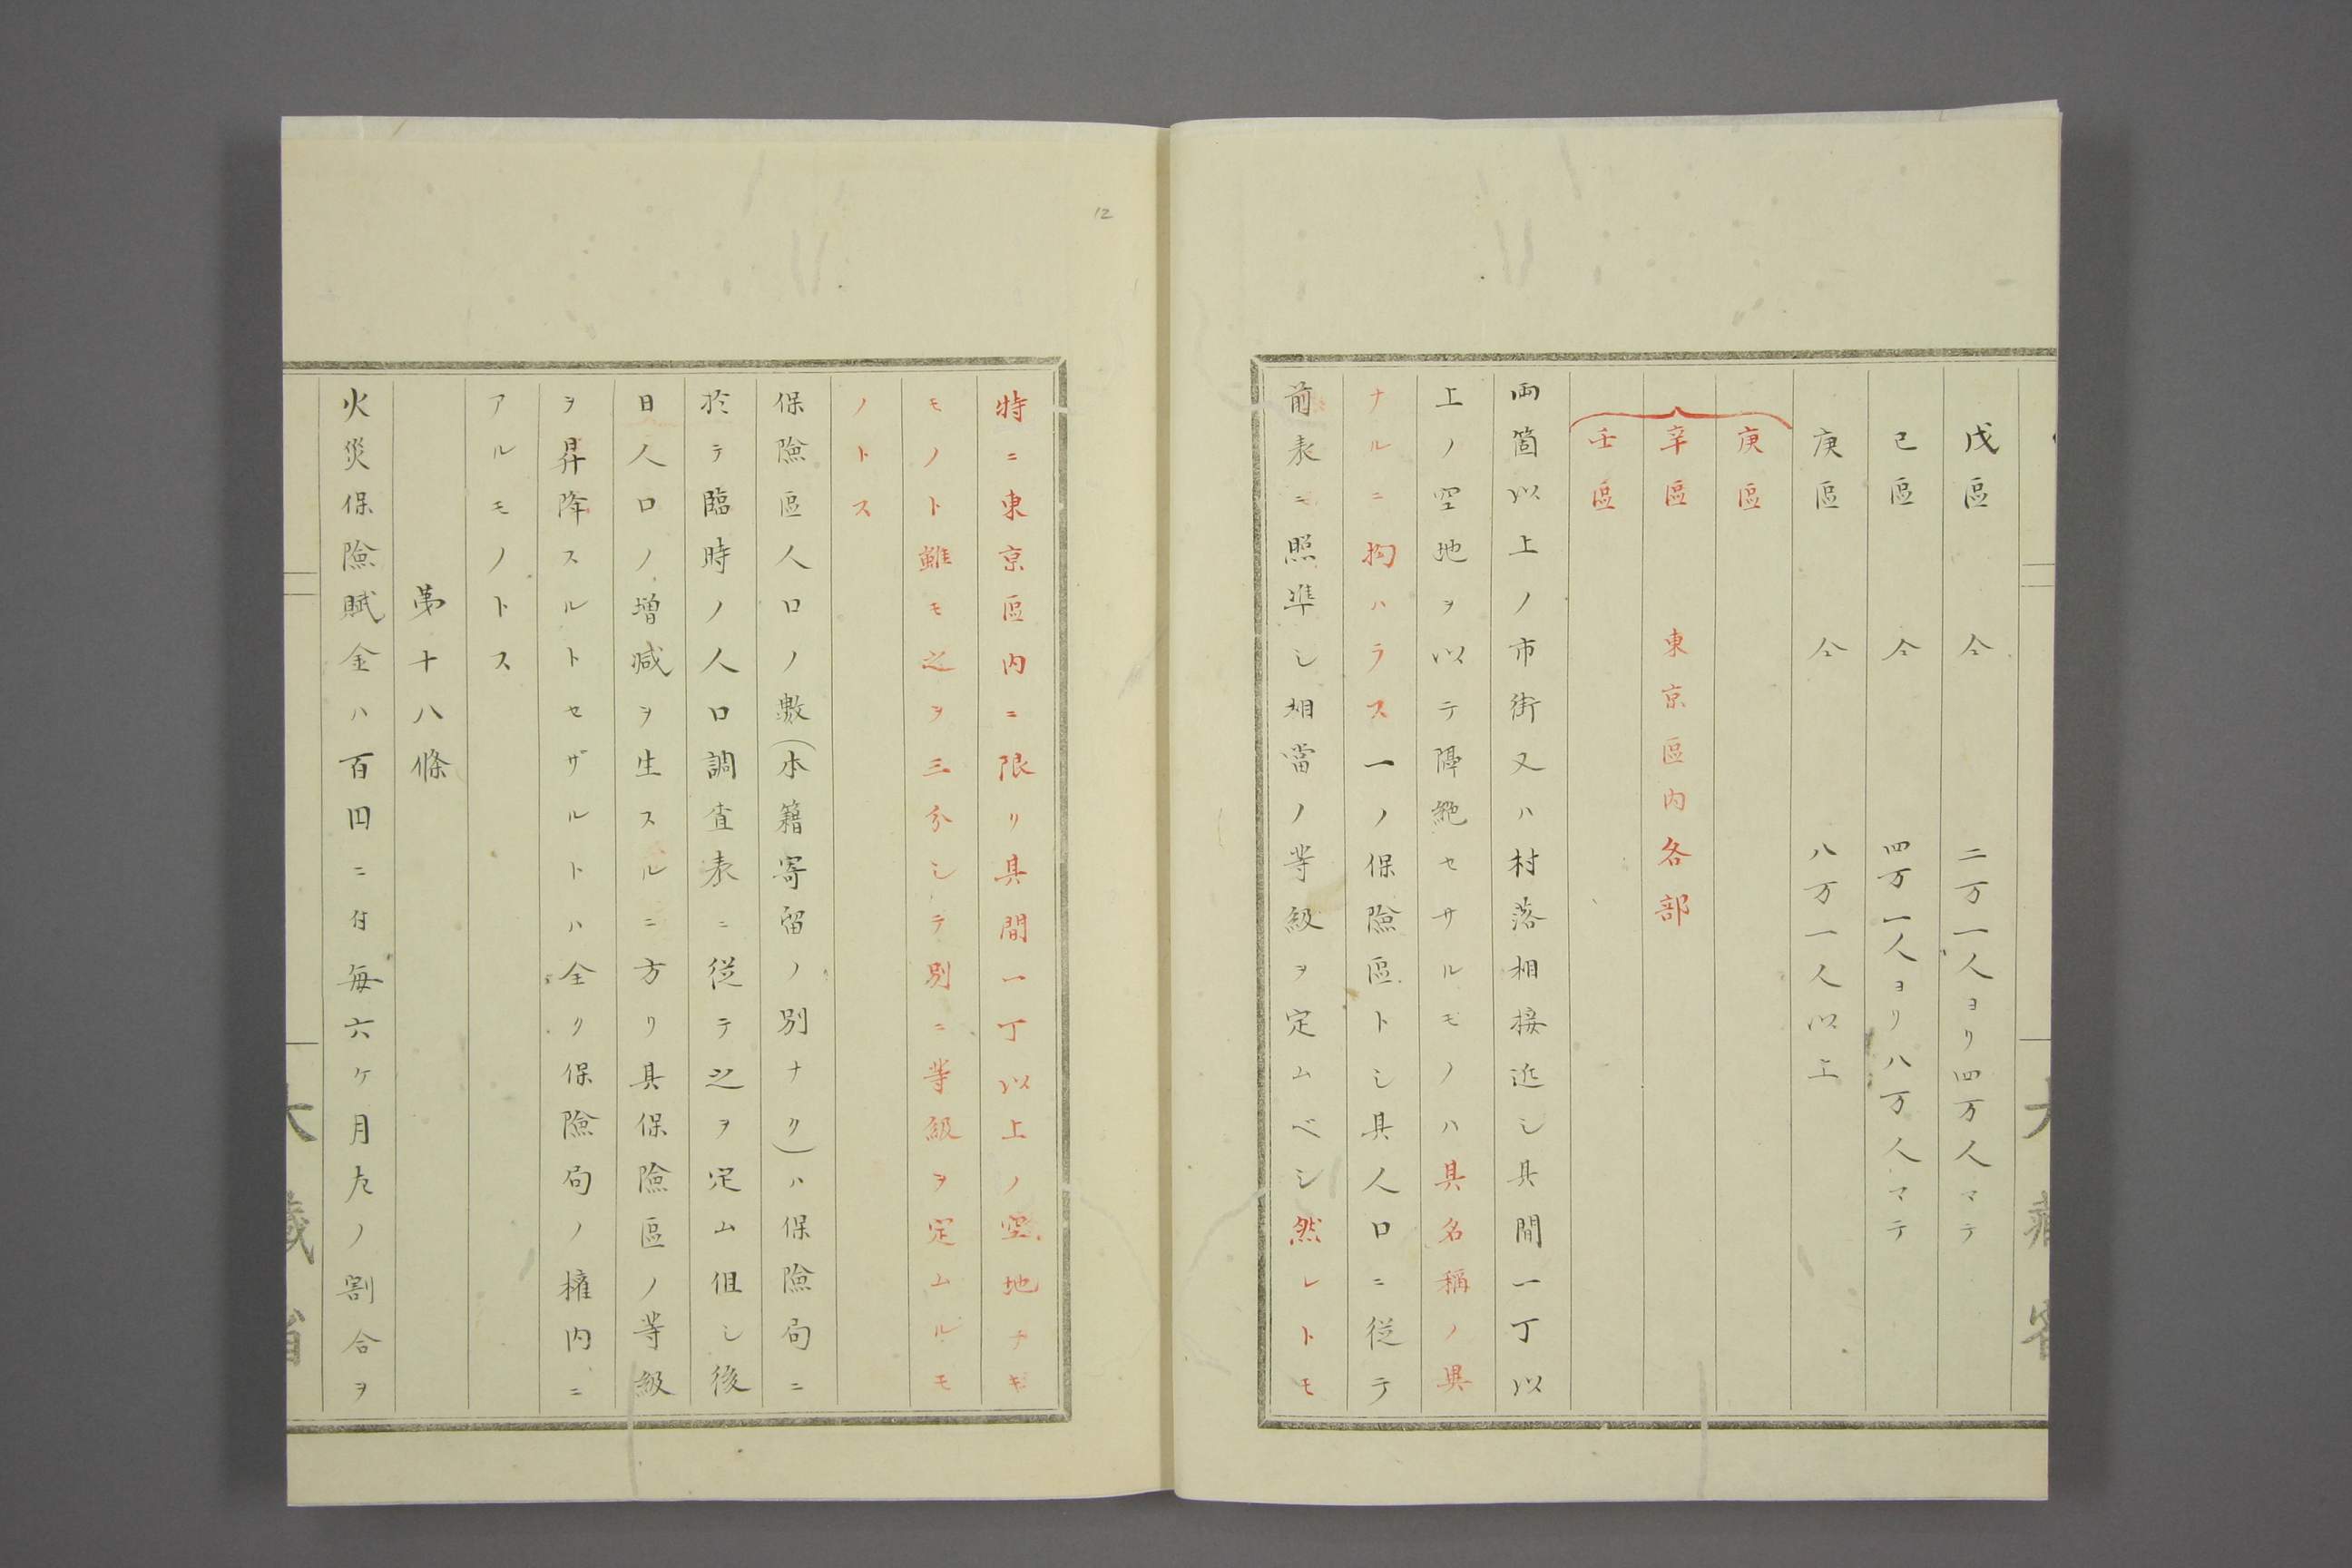 戊區　仝　二万一人ヨリ四万人マテ
己區　仝　四万一人ヨリ八万人マテ
庚區　仝　八万一人以上
庚區
辛區　東京區内各部
壬區
両箇以上ノ市街又ハ村落相接近シ其間一丁以
上ノ空地ヲ以テ隔絶セサルモノハ其名稱ノ異
ナルニ拘ハラス一ノ保險區トシ其人口ニ従テ
前表ニ照準シ相當ノ等級ヲ定ムベシ然レトモ
特ニ東京區内ニ限リ其間一丁以上ノ空地ナキ
モノト雖モ之ヲ三分シテ別ニ等級ヲ定ムルモ
ノトス
保險區人口ノ數(本籍寄留ノ別ナク)ハ保險局ニ
於テ臨時ノ人口調査表ニ従テ之ヲ定ム但シ後
日人口ノ増减ヲ生スルニ方リ其保險區ノ等級
ヲ昇降スルトセザルトハ全ク保險局ノ權内ニ
アルモノトス
第十八條
火災保險賦金ハ百円ニ付毎六ケ月左ノ割合ヲ
大藏省
12